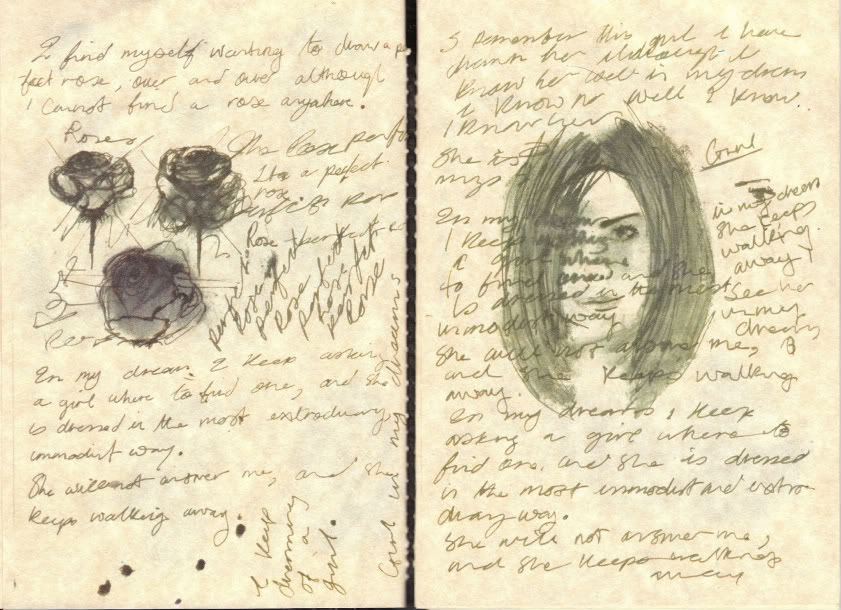 I find myself wanting to draw a per
fect rose, over and over although
I cannot find a rose anywhere.
Roses
The Rose perfe
It's a perfect
rose
perfect Rose
Rose perfect
perfect
Rose
perfect
Rose
perfect
Rose
perfect
Rose
In my dream I keep asking
a girl where to find one, and she
is dressed in the most extrodinary,
immodist way.
She will not answer me, and she
keeps walking away.
I keep
dreaming
of a
girl.
Girl in my dreams
I remember this girl I have
drawn her although I
know her well in my dream
I know no well I know
I know her
She is
my
Girl
in my dream
she keeps
walking
away I
see her
in my
dreams
In my dreams
I keep asking
a girl where
to find one and she
is dressed in the most
immodist way
She will not answer me,
and she keeps walking
away.
In my dreams I keep
asking a girl where to
find one. and she is dressed
in the most immodist and extro
dinary way.
She will not answer me,
and she keeps walking
away